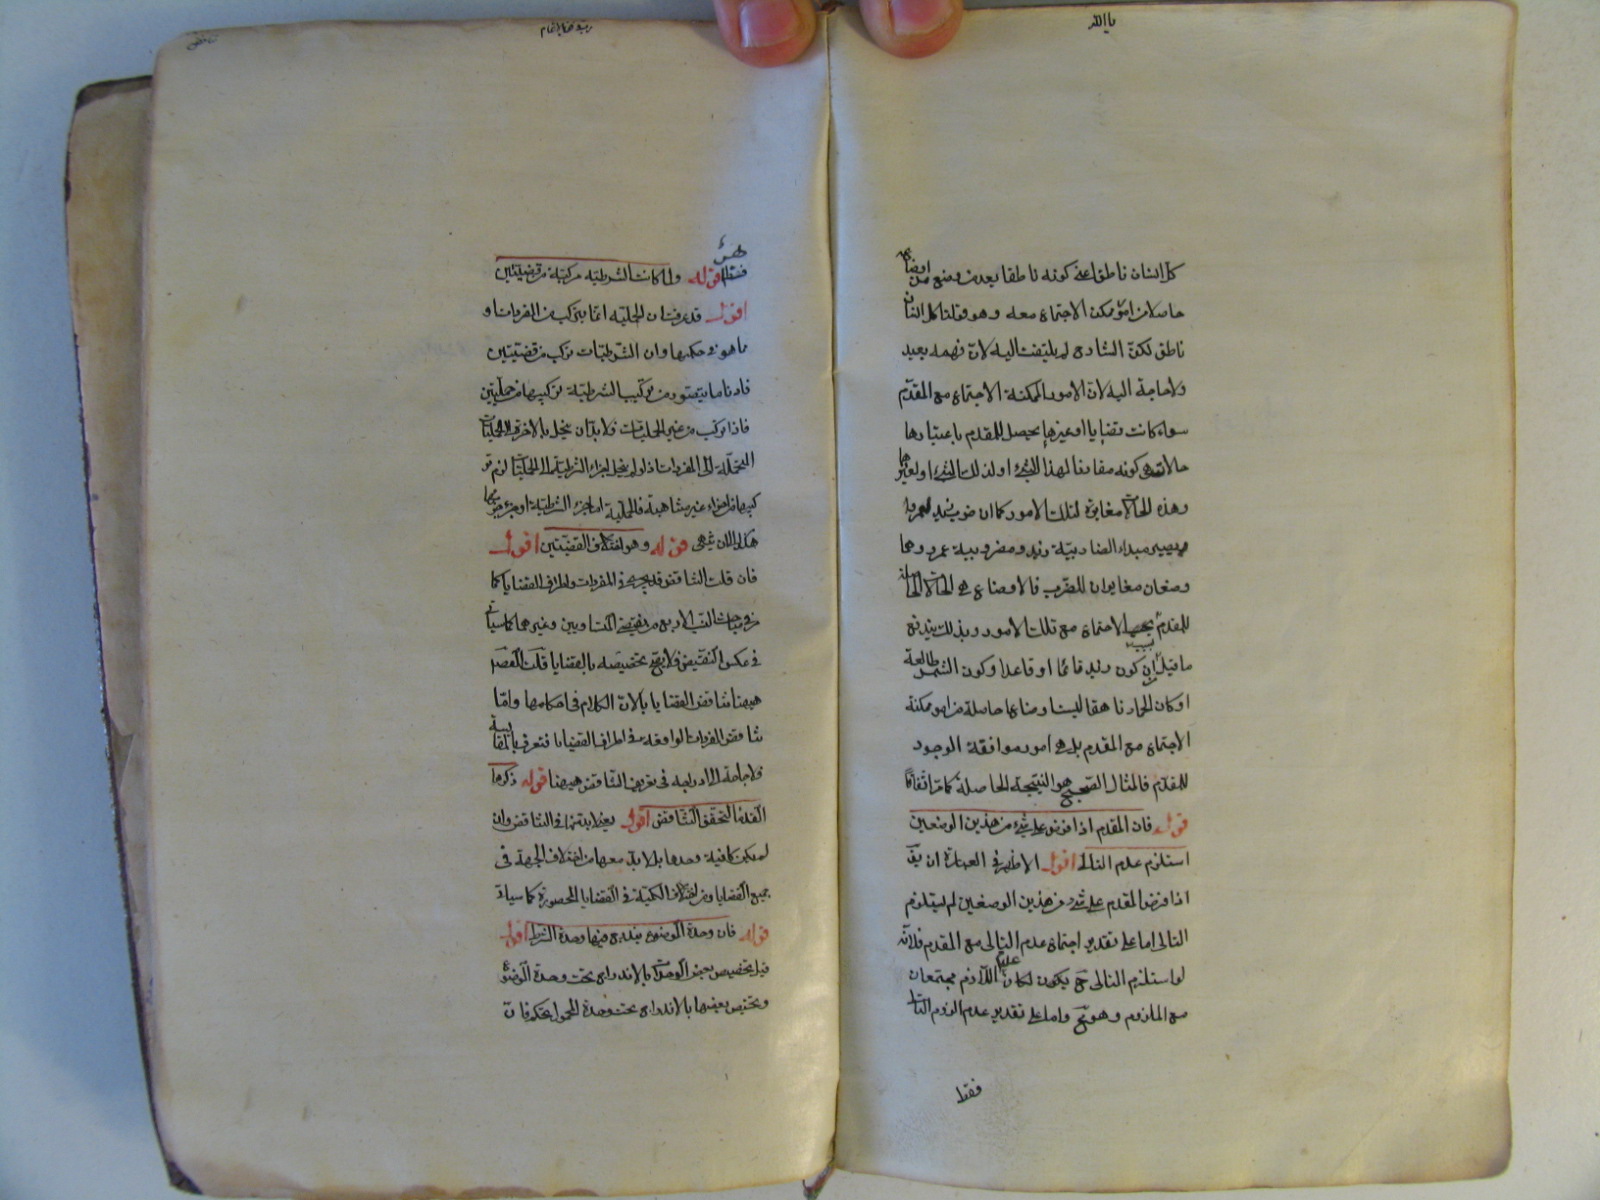 يا الله
كل انسان ناطق اعنى كونه ناطقا بعدن وضع من اوضاعه
حاصلا من امور ممكن الاجتماع معه وهو قولنا كل انسان
ناطق لكن الشارح لم يلتفت اليه لان فهمه بعيد
ولا حاجة اليه لان الامور الممكنة الاجتماع مع المقدم
سواء كانت قضايا او غيرها يحصل للمقدم باعتبارها
حالات هى كونه مقارنا لهذا الشئ او لذلك الشئ او لغيرهما
وهذه الحالات مغايرة لتلك الامور كما ان ضرب زيد لعمرو
يصير مبداء لضاربية زيد ومضروبية عمرو وهما
وصفان مغايران للضرب فالاوضاع هى الحالات الحاصلة
للمقدم بسبب الاجتماع مع تلك الامور وبذلك يندفع
ما قيل ان كون زيد قائما او قاعدا وكون الشمس طالعة
او كان الحمار ناهقا ليست اوضاعا حاصلة من امور ممكنة
الاجتماع مع المقدم بل هى امور موافقة الوجود
للمقدم فالمثال الصحيح هو النتيجة الحاصلة كما مر اتفاقا
قوله فان المقدم اذا فرض على شئ من هذين الوضعين
استلزم عدم التالى اقول الاظهر فى العبارة ان يق
اذا فرض المقدم على شئ من هذين الوضعين لم يستلزم
التالى اما على تقدير اجتماع عدم التالى مع المقدم فلانه
لو استلزم التالى ح يكون لكان عدم اللازم مجتمعا
مع الملزوم وهو مح واما على تقدير عدم لزوم التالى
فقط
فقط قوله ولما كانت الشرطية مركبة من قضيتين
اقول قد عرفت ان الحملية انما يتركب من المفردات او
ما هو فى حكمها وان الشرطيات تركب من قضيتين
فادنا ما يتصور من تركيب الشرطية تركيبها من حمليتين
فاذا تركب من غير الحمليات فلا بد ان ينحل بالاخرة الى الحمليات
المنحلة الى المفردات اذ لو لم ينحل اجزاء الشرطية الى الحمليات لزم تر
كبها من اجزاء غير متناهية فالحملية اما جزء الشرطية او جزء جزئها
هكذا الى ان ينتهى قوله وهو اختلاف القضيتين اقول
فان قلت التناقض قد يجرى فى المفردات واطراف القضايا كما
مر فى مباحث النسب الاربع من نقيضى المتساويين وغيرهما كما سيأتى
فى عكس النقيض فلا يصح تخصيصه بالقضايا قلت المقصود
ههنا تناقض القضايا لان الكلام فى احكامها واما
تناقض المفردات الواقعة فى اطراف القضايا فتعرف بالمقايسة
ولا حاجة الى ادراجه فى تعريف التناقض ههنا قوله ذكرها
القدماء لتحقق التناقض اقول يعنى لا بد منها فى التناقض وان
لم يكن كافية وحدها بل لا بد معها من اختلاف الجهة فى
جميع القضايا ومن اختلاف الكمية فى القضايا المحصورة كما سيأتى
قوله فان وحدة الموضوع يندرج فيها وحدة الشرط اقول
قيل تخصيص بعض الوحدات بالاندراج تحت وحدة الموضوع
وتخصيص بعضها بالاندراج تحت وحدة المحمول تحكم فان